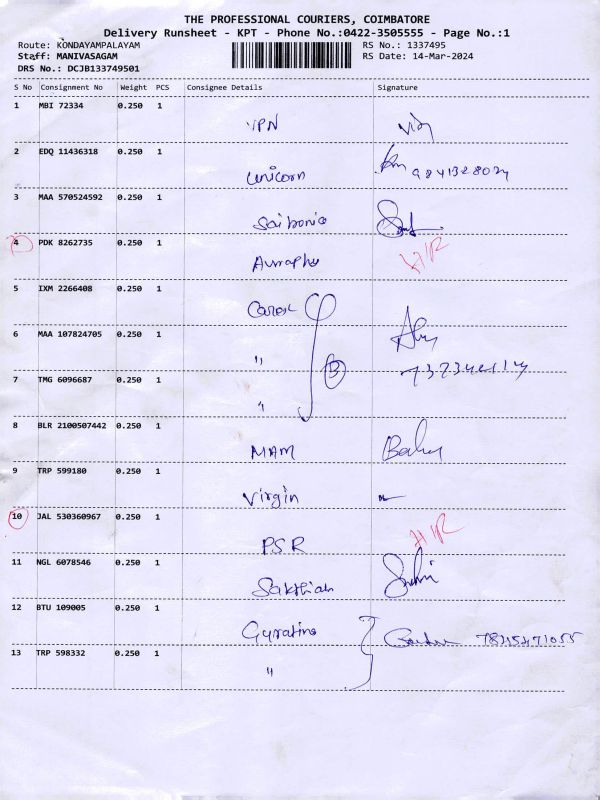 THE PROFESSIONAL COURIERS, COIMBATORE
Delivery Runsheet - KPT - Phone No.:0422-3505555 - Page No.:1
Route: KONDAYAMPALAYAM RS No.: 1337495
Staff: MANIVASAGAM RS Date: 14-Mar-2024
DRS No.: DCJB133749501
S No Consignment No Weight PCS Consignee Details Signature
1 MBI 72334 0.250 1
VPN
2 EDQ 11436318 0.250 1
Unicorn
3 MAA 570524592 0.250 1
4 PDK 8262735 0.250 1 HR
5 IXM 2266408 0.250 1
6 MAA 107824705 0.250 1
"
3
7 TMG 6096687 0.250 1
"
8 BLR 2100507442 0.250 1
MAM
9 TRP 599180 0.250 1
Virgin
10 JAL 530360967 0.250 1 HR
PSR
11 NGL 6078546 0.250 1
12 BTU 109005 0.250 1
13 TRP 598332 0.250 1
"